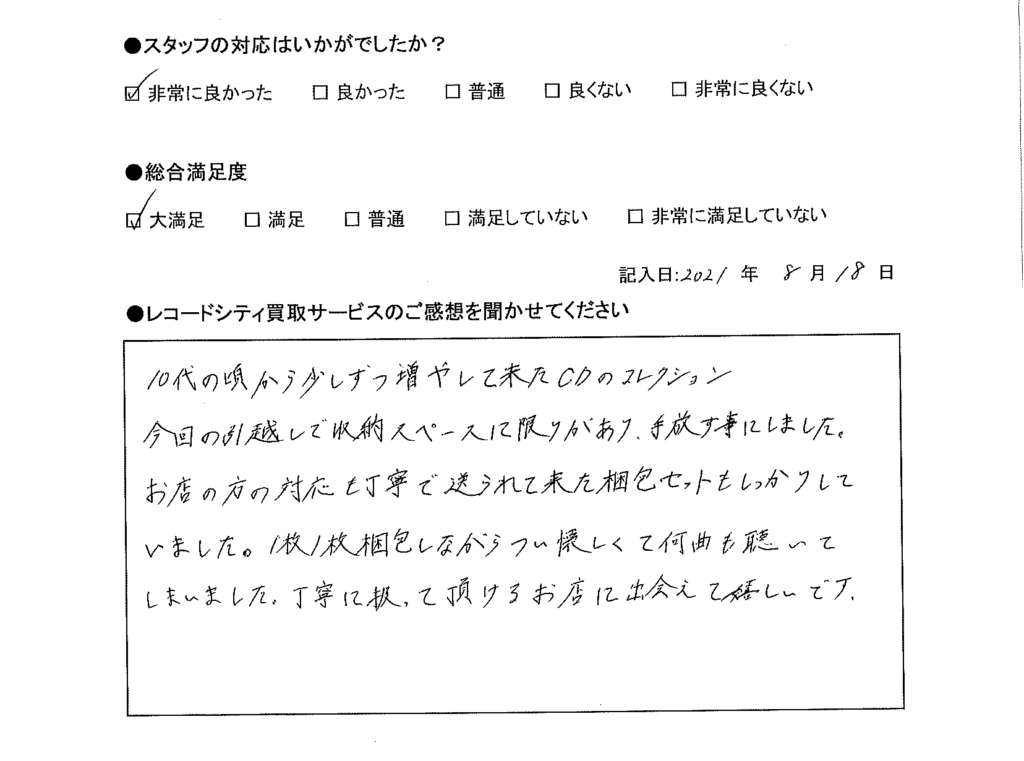 ●スタッフの対応はいかがでしたか？
☑ 非常に良かった □ 良かった □ 普通 □ 良くない □ 非常に良くない
●総合満足度
☑ 大満足 □ 満足 □ 普通 □ 満足していない □ 非常に満足していない
記入日:2021 年 8 月 18 日
●レコードシティ買取サービスのご感想を聞かせてください
10代の頃から少しずつ増やして来たCDのコレクション
今回の引越しで収納スペースに限りがあり、手放す事にしました。
お店の方の対応も丁寧で送られて来た梱包セットもしっかりして
いました。1枚1枚梱包しながらつい懐しくて何曲も聴いて
しまいました。丁寧に扱って頂けるお店に出会えて嬉しいです.